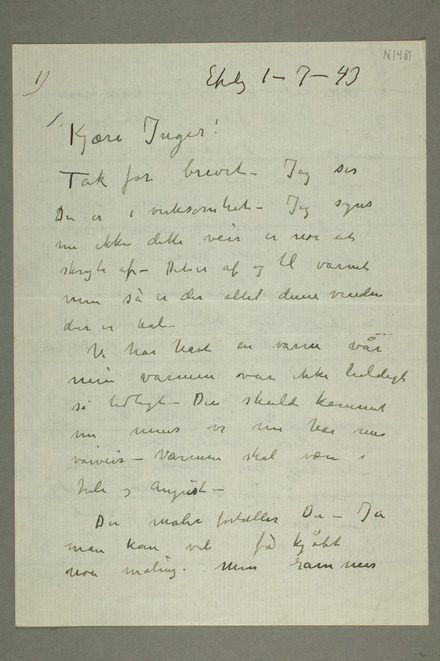 N1481
1)
Ekely 1-7-43
Kjære Inger!
Tak for brevet – Jeg ser
Du er i virksomhet – Jeg synes
nu ikke dette veir er noe at
skryte af – Det er af og til varmt
men så er der altid denne vinden
der er kal –
Vi har havt en varm vår
men varmen var ikke heldigt
så tidligt – Den skulde kommet
nu mens vi nu har
 – Varmen skal være i
Juli og August –
Du maler fortæller Du – Ja
man kan vel få kjøbt
noe maling. Men rammer